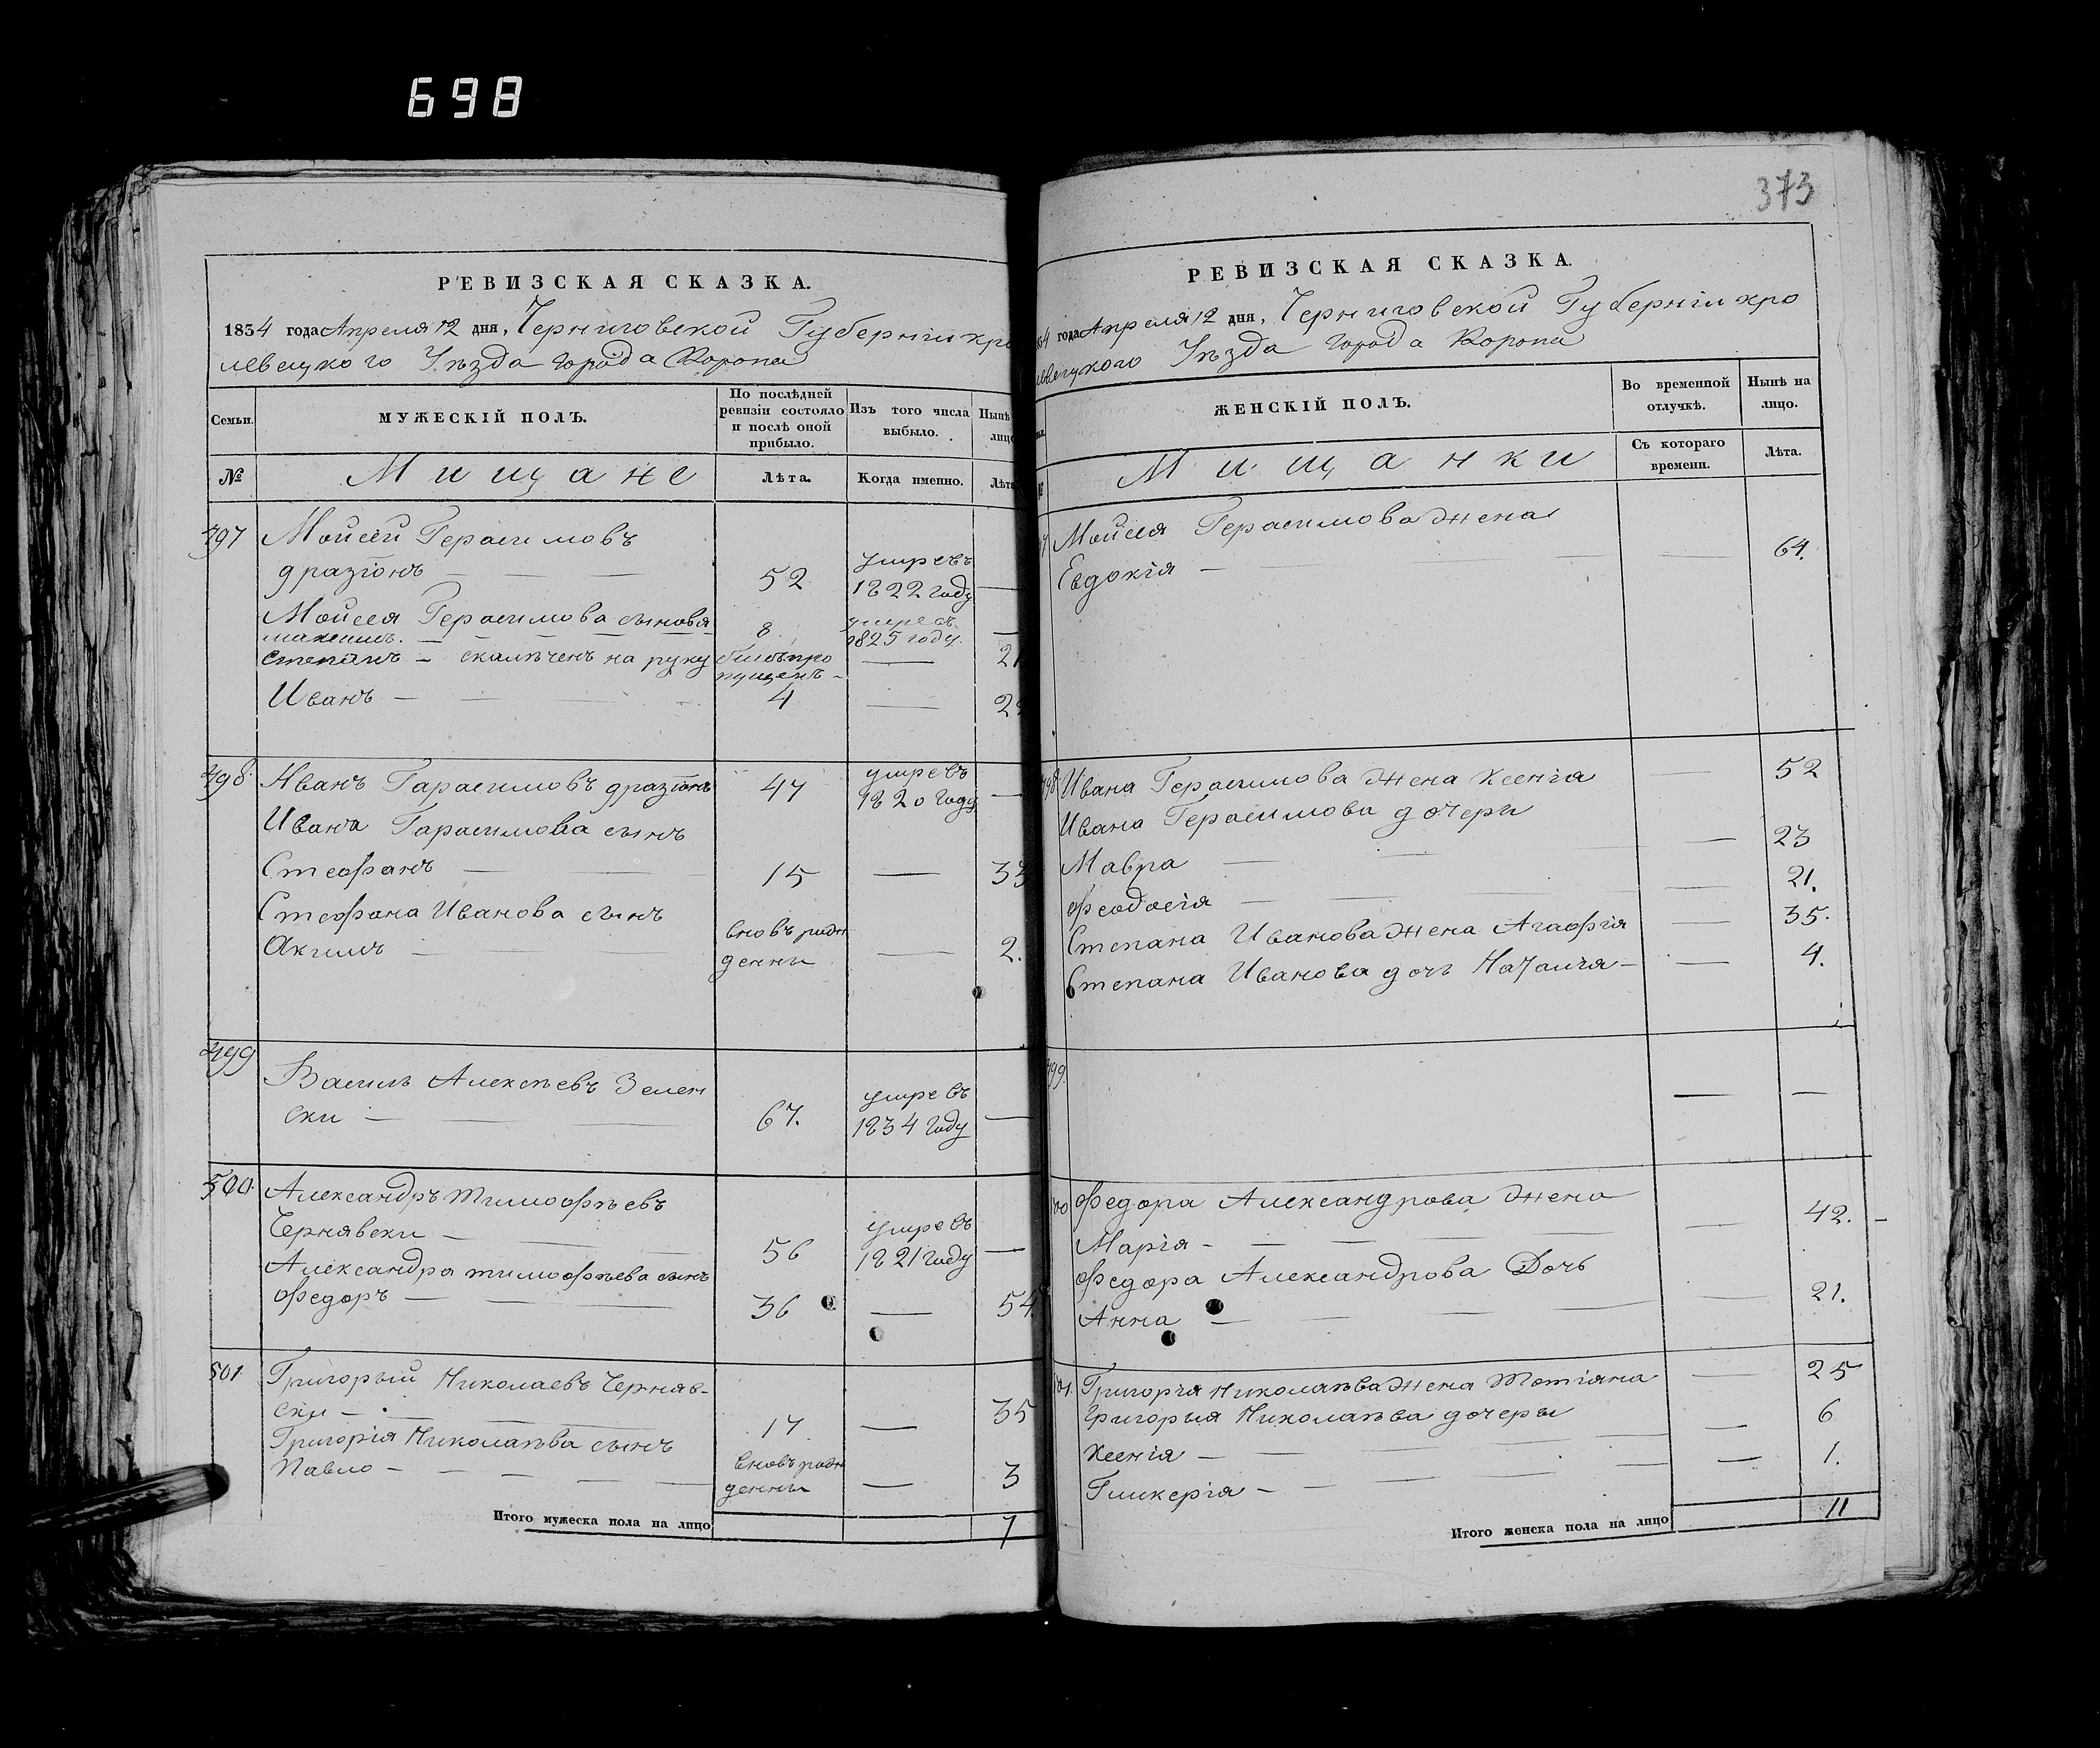 698
РЕВИЗСКАЯ СКАЗКА.
1834 года Апреля 12 дня, Черниговской Губернии кро
левецкого Уѣзда города Коропа
Семьи.
МУЖЕСКІЙ ПОЛЪ.
По послѣдней ревизіи состояло и послѣ оной прибыло.
Изъ того числа выбыло.
Нынѣ
лицо
№
Мищане
Лѣта.
Когда именно.
Лѣта
497 Мойсей Герасимовъ
дразгонъ — 52 умревъ 1822 году —
Мойсея Герасимова сыновья
8 умревъ 1825 году. —
Степанъ — скалѣченъ на руку былъ пропущенъ — — 21
Иванъ — 4 — 2
498. Иванъ Гарасимовъ дразгонъ 47 умревъ 1820 году —
Ивана Гарасимова сынъ
Стефанъ — 15 — 33
Стефана Иванова сынъ
Акимъ — вновь рожденны — 2.
499 Василь Алексѣевъ Зелен
ски — 67. умревъ 1834 году —
500. Александръ Тимофѣевъ
Чернявски — 56 умревъ 1821 году —
Александра тимофѣева сынъ
Федоръ — 36 — 54.
501 Григорый Николаевъ Черняв-
ски — 17 — 35
Григорія Николаѣва сынъ
Павло — вновь рожденны — 3
Итого мужеска пола на лицо 7
373
РЕВИЗСКАЯ СКАЗКА.
34 года Апреля 12 дня, Черниговской Губерніи кро
левецкого Уѣзда города Коропа
ЖЕНСКІЙ ПОЛЪ.
Во временной отлучкѣ.
Нынѣ на лицо.
Мищанки
Съ котораго времени.
Лѣта.
Мойсея Герасимова жена
Евдокія — — 64.
498. Ивана Герасимова жена Ксенія — 52
Ивана Герасимова дочери
Мавра — — 23
Феодосія — — 21.
Степана Иванова жена Агафія — 35.
Степана Иванова дочь Наталія — — 4.
499. — —
Федора Александрова жена
Марія — — 42. —
Федора Александрова Дочь
Анна — — 21.
Григорія Николаѣва жена Татіана — 25
Григорыя Николаѣва дочеры
Ксенія — — 6
Гликерія — — 1.
Итого женска пола на лицо 11